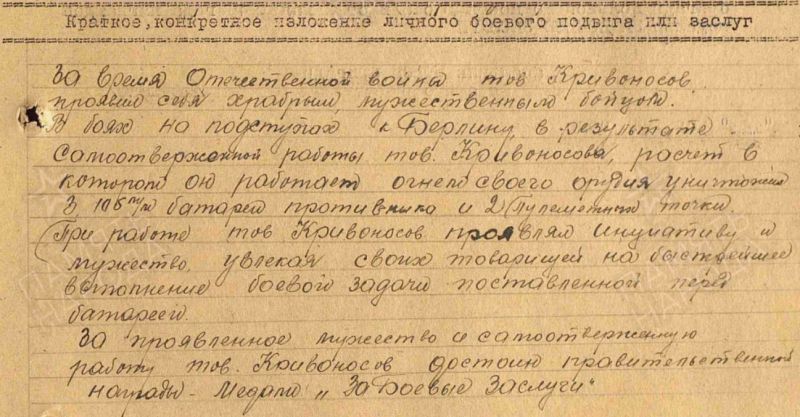 Краткое, конкретное изложение личного боевого подвига или заслуг
За время Отечественной войны тов Кривоносов
проявил себя храбрым мужественным бойцом.
В боях на подступах к Берлину в результате
самоотверженной работы тов. Кривоносова, расчет в
котором он работает огнем своего орудия уничтожил
3 105 м/м батареи противника и 2 пулеметных точки
При работе тов Кривоносов проявлял инициативу и
мужество, увлекая своих товарищей на быстрейшее
выполнение боевой задачи поставленной перед
батареей.
За проявленное мужество и самоотверженную
работу тов. Кривоносов достоин правительственной
награды - Медали „За Боевые Заслуги"